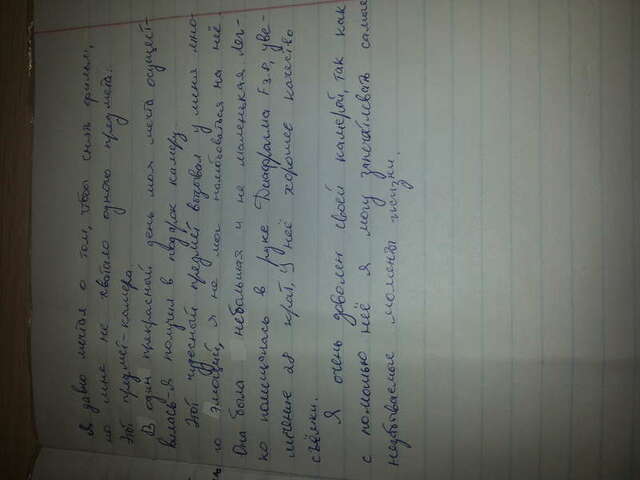 Я давно мечтал о том, чтобы снять фильм,
но мне не хватало одного предмета.
Этот предмет-камера
В один прекрасный день моя мечта осущест-
вилась-я получил в подарок камеру.
Этот чудесный предмет вызвал у меня мно-
го эмоций, я не мог налюбоваться на неё.
Она была небольшая и не маленькая лег-
ко помещалась в руке Диафрагма F 3.0, уве-
личение 28 крат, У неё хорошее качество
съёмки.
Я очень доволен своей камерой, так как
с помощью неё я могу запечатлевать самые
незабываемые моменты жизни.